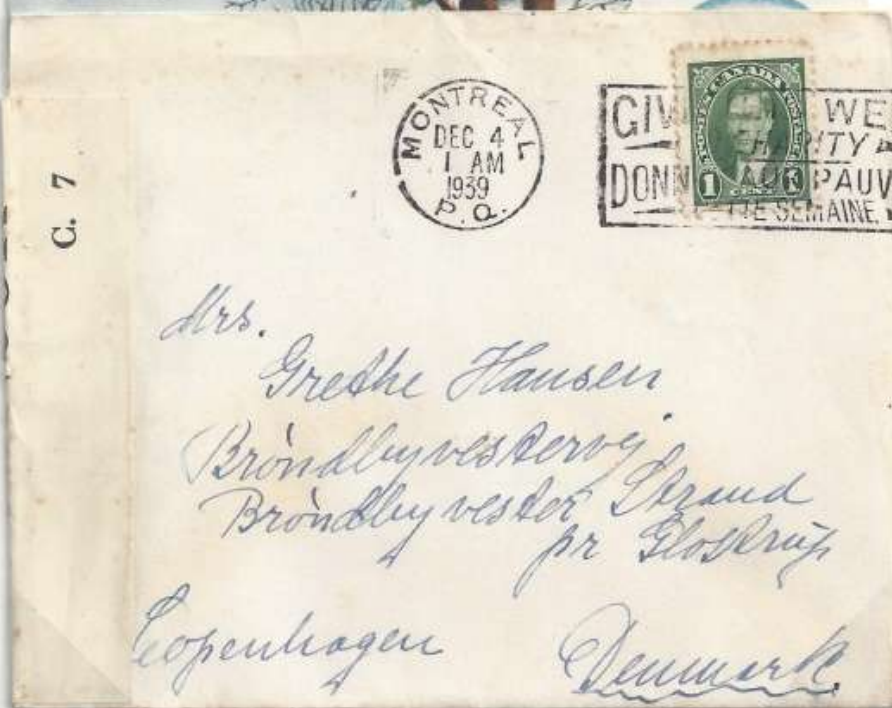 C. 7
MONTREAL
DEC 4
1 AM
1939
P. Q.
GIV WE
RITY
DONN AU PAUV
TE SEMAINE
POSTES CANADA POSTAGE
1
Mrs.
Grethe Hansen
Bröndbyvestervej
Bröndbyvester Strand
pr Glostrup
Copenhagen Denmark